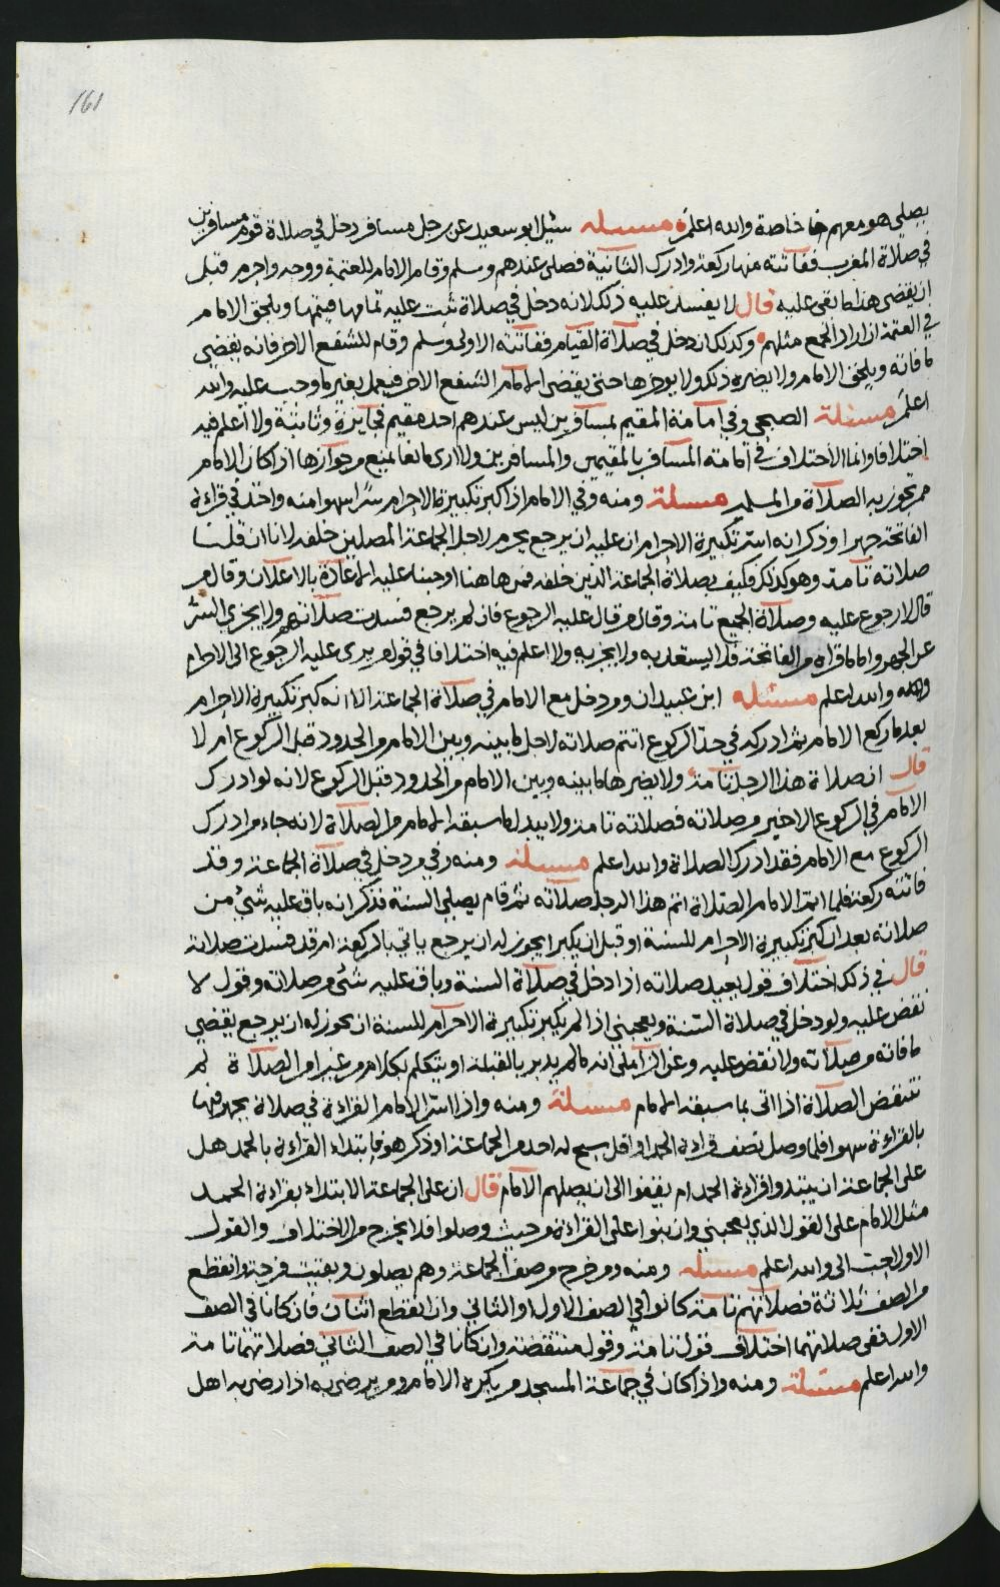 161
يصلي هو معهم خاصة والله اعلم مسئله سئل ابو سعيد عن رجل مسافر دخل في صلاة قوم مسافرين
في صلاة المغرب ففاتته منها ركعة وادرك الثانية فصلى عندهم وسلم وقام الامام للعتمة ووجه واحرم قبل
ان يقضي هذا ما بقي عليه قال لا يفسد عليه ذلك لانه دخل في صلاة ثبت عليه تمامها فيتمها ويلحق الامام
في العتمة اذا اراد الجمع مثلهم وكذلك ان دخل في صلاة القيام ففاتته الاولى وسلم وقام للشفع الاخر فانه يقضي
ما فاته ويلحق الامام ولا يضره ذلك ولا يؤخرها حتى يقضي الامام الشفع الاخر فيعمل بغير ما وجب عليه والله
اعلم مسئلة الصبحي وفي امامة المقيم بمسافرين ليس عندهم احد مقيم فجايزة وثابتة ولا اعلم فيه
اختلافا وانما الاختلاف في امامة المسافر بالمقيمين والمسافرين ولا ارى مانعا يمنع من جوازها اذا كان الامام
ممن تجوز به الصلاة من المسلمين مسئلة ومنه وفي الامام اذا كبر تكبيرة الاحرام سرا سهوا منه واخذ في قراءة
الفاتحة جهرا وذكر انه اسر تكبيرة الاحرام ان عليه ان يرجع يحرم لاجل الجماعة المصلين خلفه لانا ان قلنا
صلاته تامة وهو كذلك فكيف بصلاة الجماعة الذين خلفه فمن هاهنا اوجبنا عليه الاعادة بالاعلان وقال من
قال لا رجوع عليه وصلاة الجميع تامة وقال من قال عليه الرجوع فان لم يرجع فسدت صلاتهم ولا يجزي السر
عن الجهر واما ما قراه من الفاتحة فلا يستعد به ولا يجزيه ولا اعلم فيه اختلافا في قول من يرى عليه الرجوع الى الاحرام
والله اعلم مسئله ابن عبيدان ومن دخل مع الامام في صلاة الجماعة الا انه كبر تكبيرة الاحرام
بعد ما ركع الامام ثم ادركه في حد الركوع اتتم صلاته لاجل ما بينه وبين الامام من الحدود قبل الركوع ام لا
قال ان صلاة هذا الرجل تامة ولا يضرها ما بينه وبين الامام من الحدود قبل الركوع لانه لو ادرك
الامام في الركوع الاخير من صلاته فصلاته تامة ولا يبدل ما سبقه الامام من الصلاة لانه جاء من ادرك
الركوع مع الامام فقد ادرك الصلاة والله اعلم مسئلة ومنه وفي من دخل في صلاة الجماعة وقد
فاتته ركعة فلما اتم الامام الصلاة اتم هذا الرجل صلاته ثم قام يصلي السنة فذكر انه باق عليه شئ من
صلاته بعد ان كبر تكبيرة الاحرام للسنة او قبل ان يكبر ايجوز له ان يرجع ياتي بالركعة ام قد فسدت صلاته
قال في ذلك اختلاف قول يعيد صلاته اذا دخل في صلاة السنة وباق عليه شئ من صلاته وقول لا
نقض عليه ولو دخل في صلاة السنة ويعجبني اذا لم يكبر تكبيرة الاحرام للسنة ان يجوز له ان يرجع يقضي
ما فاته من صلاته ولا نقض عليه وعن الزاملي انه ما لم يدبر بالقبلة او يتكلم بكلام من غير امر الصلاة لم
تنتقض الصلاة اذا اتى بما سبقه الامام مسئلة ومنه واذا اسر الامام القراءة في صلاة يجهر فيها
بالقراءة سهوا فلما وصل نصف قراءة الحمد او اقل سبح له احد من الجماعة او ذكر هو فابتداء القراءة بالحمد هل
على الجماعة ان يبتدوا قراءة الحمد ام يقفوا الى ان يصلهم الامام قال ان على الجماعة الابتداء بقراءة الحمد
مثل الامام على القول الذي يعجبني وان بنوا على القراءة من حيث وصلوا فلا يخرج من الاختلاف والقول
الاول احب الي والله اعلم مسئله ومنه ومن خرج من صف الجماعة وهم يصلون وبقيت فرجة وانقطع
من الصف ثلاثة فصلاتهم تامة كانوا في الصف الاول او الثاني وان انقطع اثنان فان كانا في الصف
الاول ففي صلاتهما اختلاف قول تامة وقول منتقضة وان كانا في الصف الثاني فصلاتهما تامة
والله اعلم مسئلة ومنه واذا كان في جماعة المسجد من يكره الامام ومن يرضى به اذا رضي به اهل